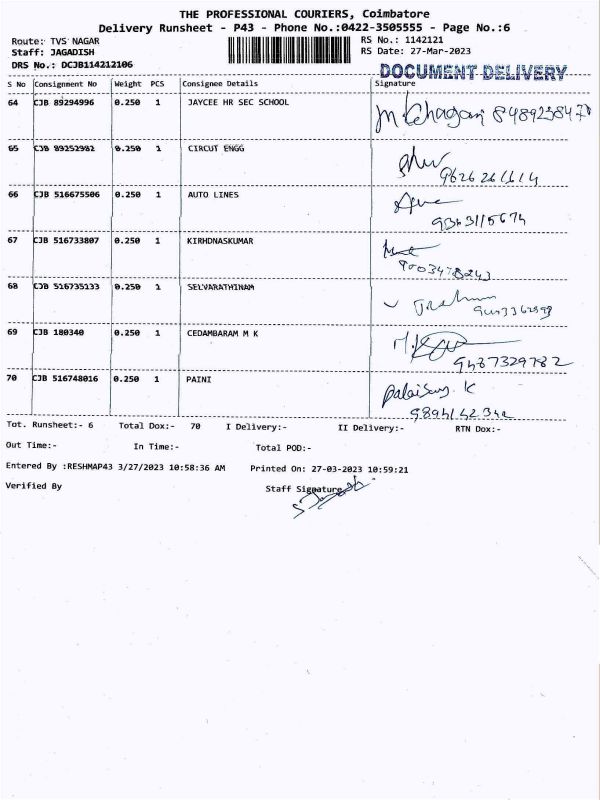 THE PROFESSIONAL COURIERS, Coimbatore
Delivery Runsheet - P43 - Phone No.:0422-3505555 - Page No.:6
Route: TVS NAGAR RS No.: 1142121
Staff: JAGADISH RS Date: 27-Mar-2023
DRS No.: DCJB114212106 DOCUMENT DELIVERY
S No Consignment No Weight PCS Consignee Details Signature
64 CJB 89294996 0.250 1 JAYCEE HR SEC SCHOOL
65 CJB 89252982 0.250 1 CIRCUT ENGG
9626261614
66 CJB 516675506 0.250 1 AUTO LINES
67 CJB 516733807 0.250 1 KIRHDNASKUMAR
9003478243
68 CJB 516735133 0.250 1 SELVARATHINAM
69 CJB 180340 0.250 1 CEDAMBARAM M K
9487329782
70 CJB 516748016 0.250 1 PAINI
Tot. Runsheet:- 6 Total Dox:- 70 I Delivery:- II Delivery:- RTN Dox:-
Out Time:- In Time:- Total POD:-
Entered By :RESHMAP43 3/27/2023 10:58:36 AM Printed On: 27-03-2023 10:59:21
Verified By Staff Signature